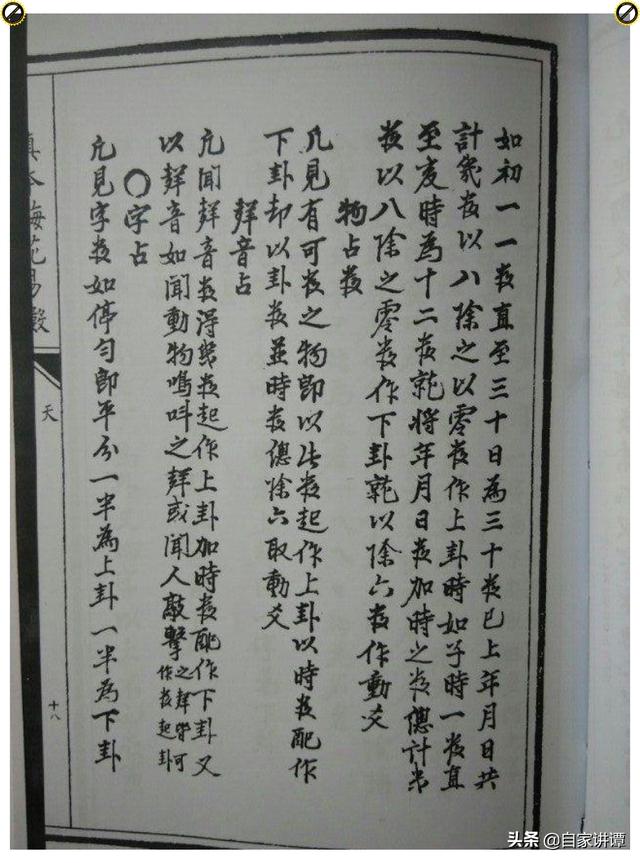 如初一一数直至三十日為三十数已上年月日共
計幾数以八除之以零数作上卦時如子時一数直
至亥時為十二数就将年月日数加時之数總計幾
数以八除之零数作下卦就以除六数作動爻
物占数
凡見有可数之物即以此数起作上卦以時数配作
下卦却以卦数並時数總除六取動爻
聲音占
凡聞聲音数得幾数起作上卦加時数配作下卦又
以聲音如聞動物鳴叫之聲或聞人敲擊之聲皆可作数起卦
〇字占
凡見字数如停勻即平分一半為上卦一半為下卦
真本梅花易數
天
十八
头条 @自家讲谭